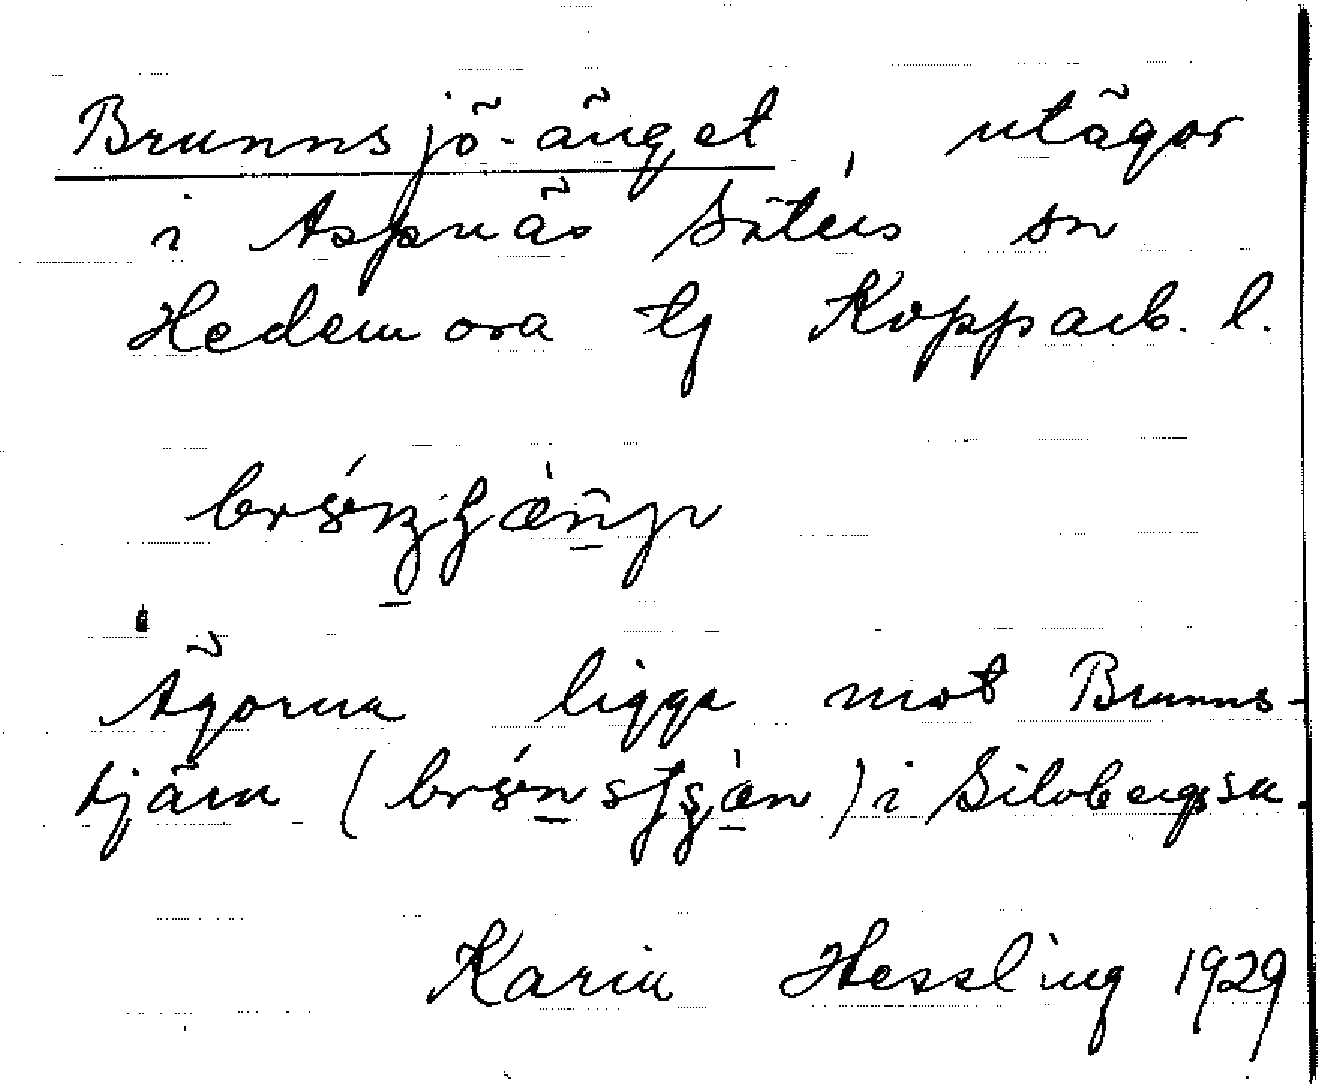 Brunnsjö-änget, utägor
i Aspnäs Säters sn
Hedemora tg Kopparb. l.
Ägorna ligga mot Brunns-
tjärn ( ) i Silvbergs sn.
Karin Hessling 1929